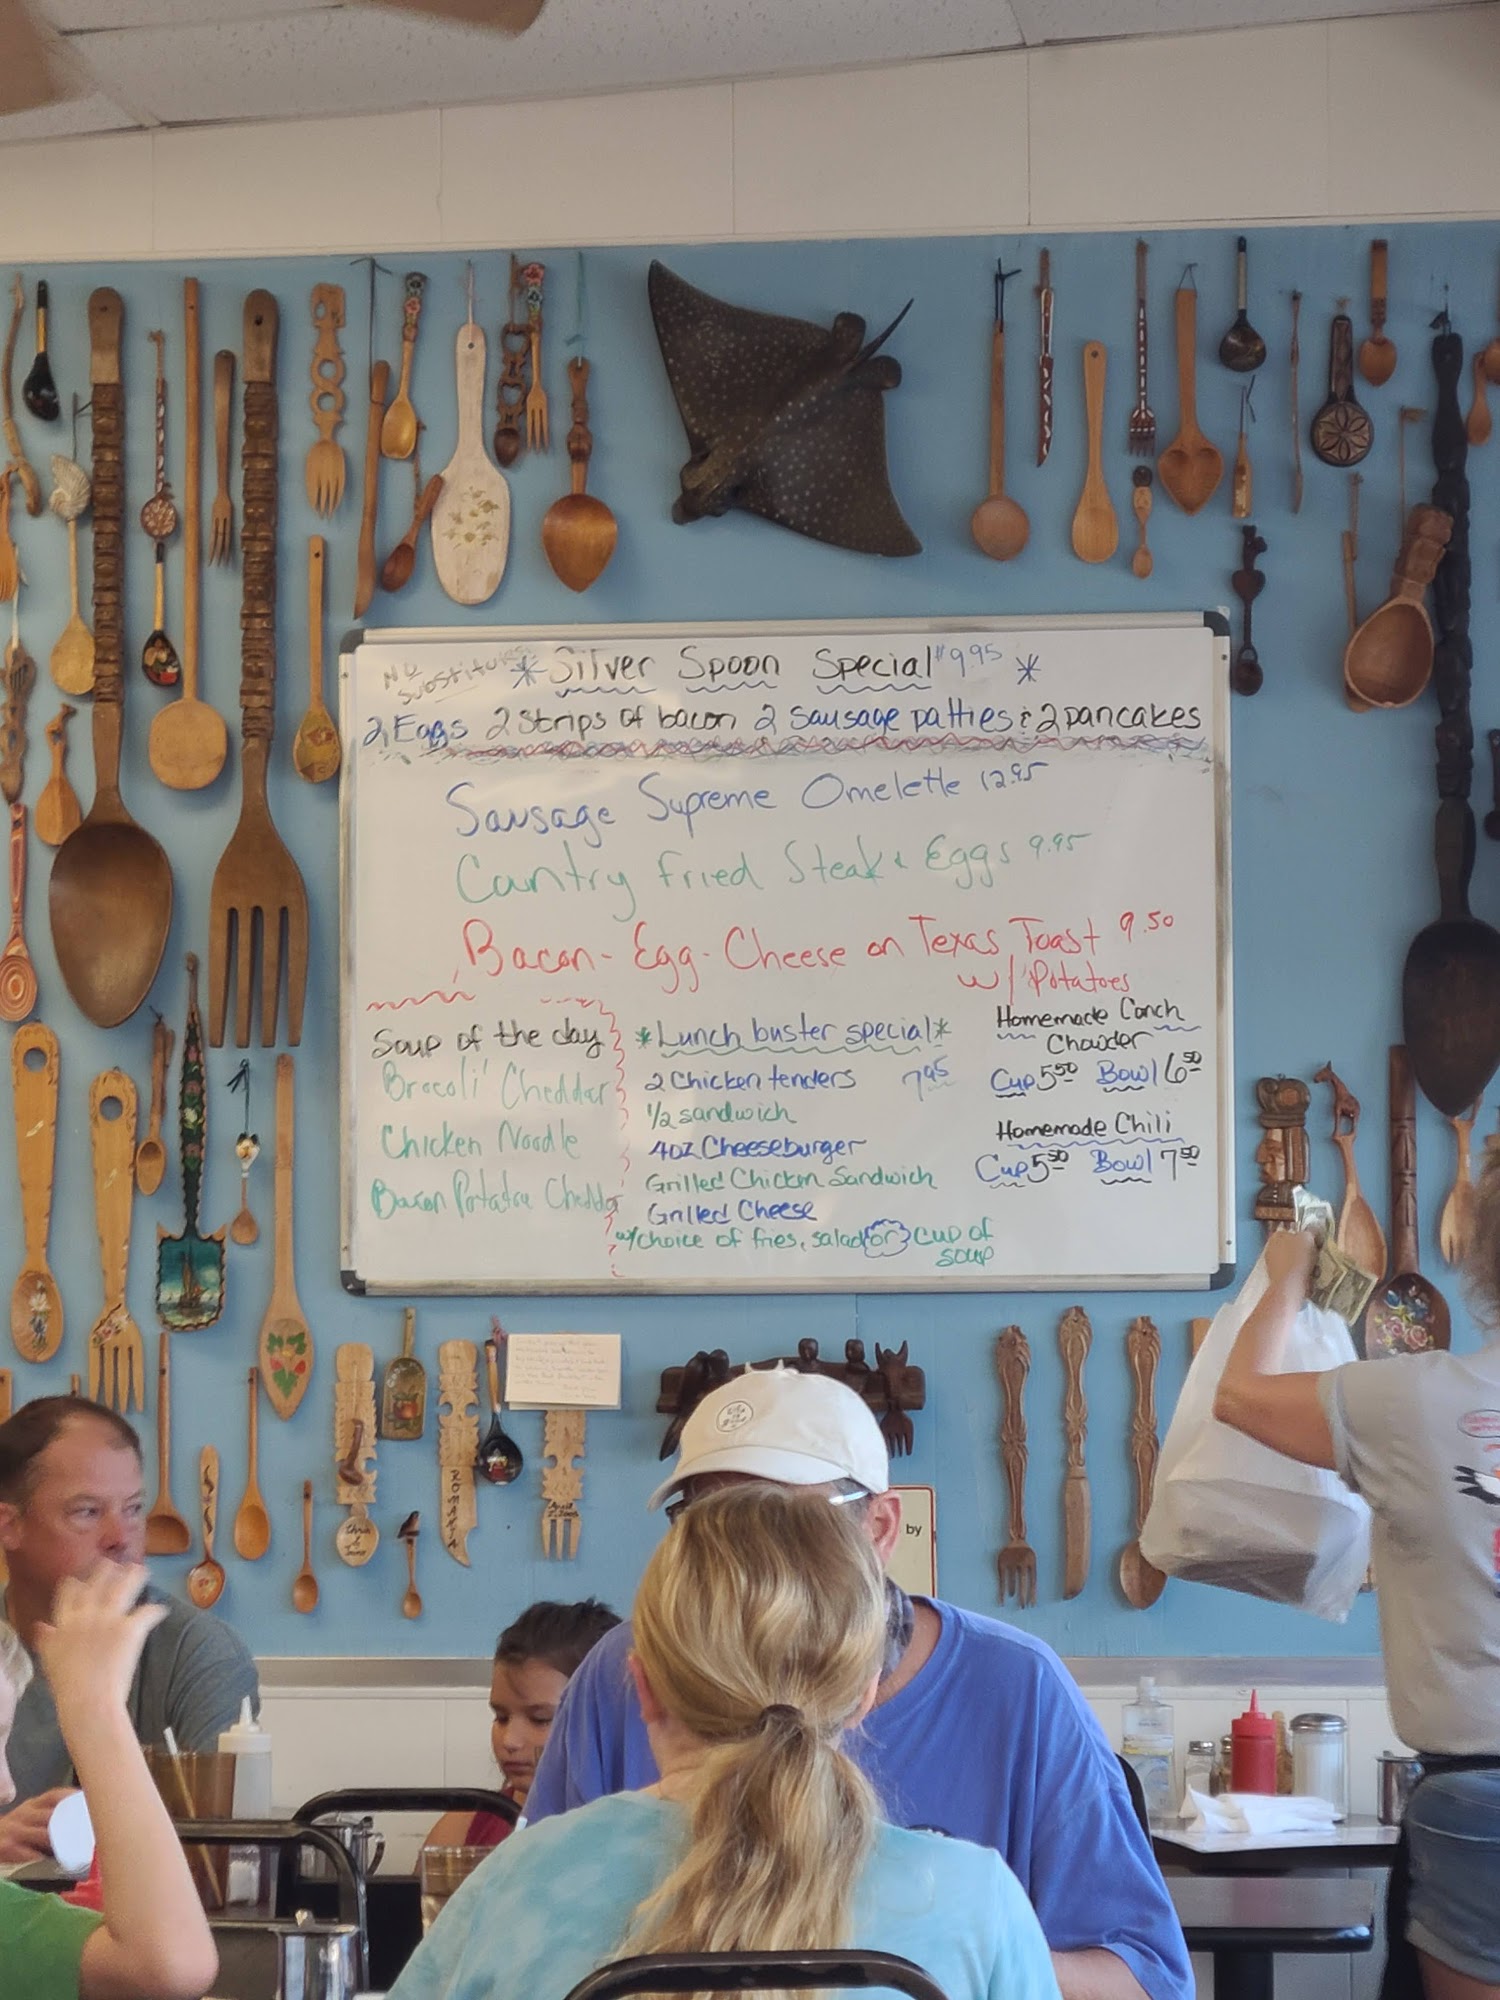 No
Substitutes
* Silver Spoon Special $9.95 *
2 Eggs 2 Strips of bacon 2 Sausage patties & 2 pancakes
Sausage Supreme Omelette 12.95
Country Fried Steak & Eggs 9.95
Bacon - Egg - Cheese on Texas Toast 9.50
w/ Potatoes
Soup of the day
Brocoli Cheddar
Chicken Noodle
Bacon Potatoe Cheddar
*Lunch buster special*
2 Chicken tenders 7.95
1/2 sandwich
4oz Cheeseburger
Grilled Chicken Sandwich
Grilled Cheese
w/choice of fries, salad or cup of
soup
Homemade Conch
Chowder
Cup 5.50 Bowl 6.50
Homemade Chili
Cup 5.50 Bowl 7.50
ROMANIA
by